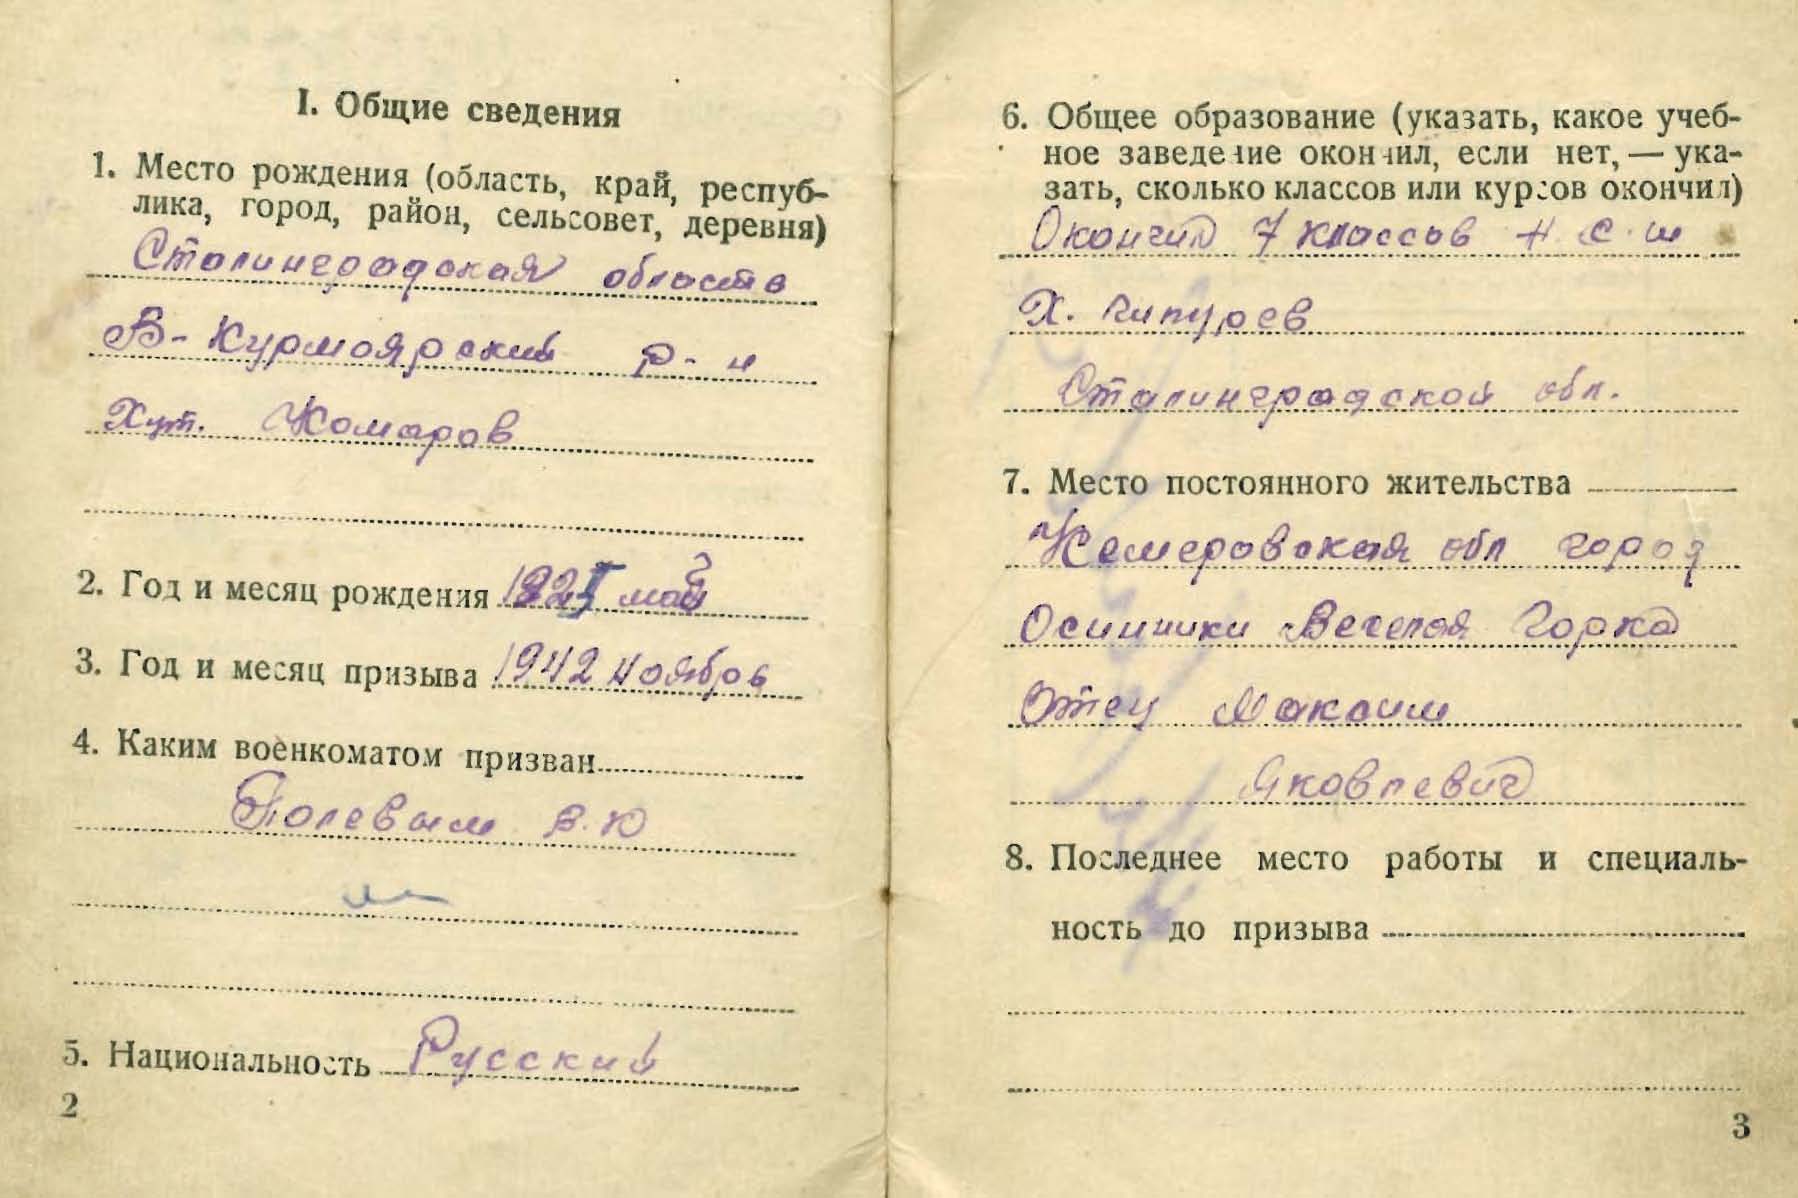 I. Общие сведения
1. Место рождения (область, край, респуб-
лика, город, район, сельсовет, деревня)
Сталинградская область
В-Курмоярский р-н
Хут. Комаров
2. Год и месяц рождения 1925 май
3. Год и месяц призыва 1942 ноябрь
4. Каким военкоматом призван
Полевым В.Ю
5. Национальность Русский
2
6. Общее образование (указать, какое учеб-
ное заведение окончил, если нет, — ука-
зать, сколько классов или курсов окончил)
Окончил 7 классов Н.С.Ш
Х. Чипурев
Сталинградской обл.
7. Место постоянного жительства
Кемеровская обл город
Осинники Веселая Горка
Отец Максим
Яковлевич
8. Последнее место работы и специаль-
ность до призыва
3